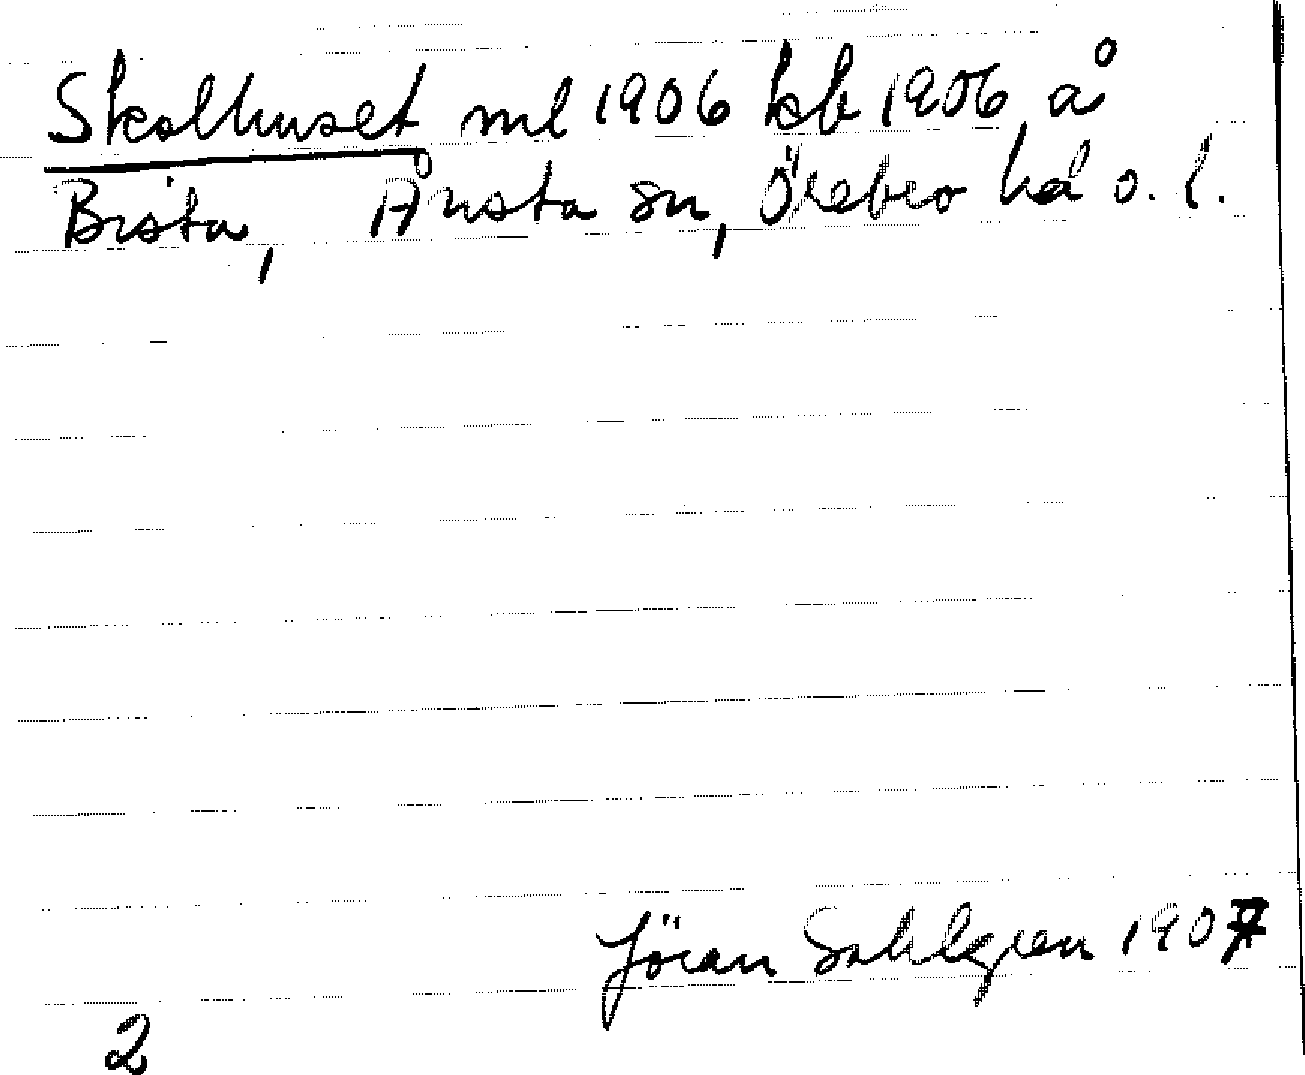 Skolhuset ml 1906 kb 1906 å
Bista, Ånsta sn, Örebro hd o. l.
Jöran Sahlgren 1907
2